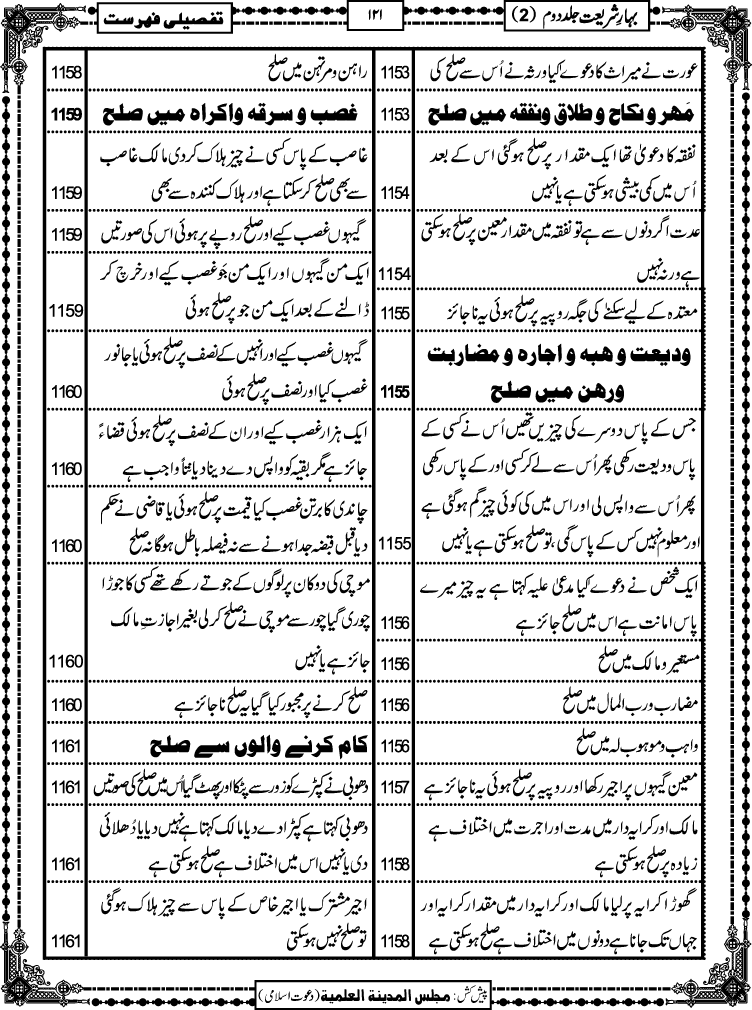 بہارِ شریعت جلد دوم (2)
۱۲۱
تفصیلی فہرست
عورت نے میراث کا دعوے کیا ورثہ نے اُس سے صلح کی 1153
مَهر و نكاح و طلاق ونفقه میں صلح 1153
نفقہ کا دعویٰ تھا ایک مقدار پر صلح ہوگئی اس کے بعد
اُس میں کمی بیشی ہوسکتی ہے یا نہیں 1154
عدت اگر دنوں سے ہے تو نفقہ میں مقدار معین پر صلح ہوسکتی
ہے ورنہ نہیں 1154
معتدہ کے لیے سکنےٰ کی جگہ روپیہ پر صلح ہوئی یہ ناجائز 1155
ودیعت و هبه و اجاره و مضاربت
ورهن میں صلح 1155
جس کے پاس دوسرے کی چیزیں تھیں اُس نے کسی کے
پاس ودیعت رکھی پھر اُس سے لے کر کسی اور کے پاس رکھی
پھر اُس سے واپس لی اور اس میں کی کوئی چیز گم ہوگئی ہے
اور معلوم نہیں کس کے پاس گمی ،تو صلح ہوسکتی ہے یا نہیں 1155
ایک شخص نے دعوے کیا مدعیٰ علیہ کہتا ہے یہ چیز میرے
پاس امانت ہے اس میں صلح جائز ہے 1156
مستعیر و مالک میں صلح 1156
مضارب و رب المال میں صلح 1156
واہب و موہوب لہ میں صلح 1156
معین گیہوں پر اجیر رکھا اور روپیہ پر صلح ہوئی یہ ناجائز ہے 1157
مالک اور کرایہ دار میں مدت اور اجرت میں اختلاف ہے
زیادہ پر صلح ہوسکتی ہے 1158
گھوڑا کرایہ پر لیا مالک اور کرایہ دار میں مقدار کرایہ اور
جہاں تک جانا ہے دونوں میں اختلاف ہے صلح ہوسکتی ہے 1158
راہن و مرتہن میں صلح 1158
غصب و سرقه واکراه میں صلح 1159
غاصب کے پاس کسی نے چیز ہلاک کردی مالک غاصب
سے بھی صلح کرسکتا ہے اور ہلاک کنندہ سے بھی 1159
گیہوں غصب کیے اور صلح روپے پر ہوئی اس کی صورتیں 1159
ایک من گیہوں اور ایک من جَو غصب کیے اور خرچ کر
ڈالنے کے بعد ایک من جو پر صلح ہوئی 1159
گیہوں غصب کیے اور انہیں کے نصف پر صلح ہوئی یا جانور
غصب کیا اور نصف پر صلح ہوئی 1160
ایک ہزار غصب کیے اور ان کے نصف پر صلح ہوئی قضاءً
جائز ہے مگر بقیہ کو واپس دے دینا دیانتاً واجب ہے 1160
چاندی کا برتن غصب کیا قیمت پر صلح ہوئی یا قاضی نے حکم
دیا قبل قبضہ جدا ہونے سے نہ فیصلہ باطل ہوگا نہ صلح 1160
موچی کی دوکان پر لوگوں کے جوتے رکھے تھے کسی کا جوڑا
چوری گیا چور سے موچی نے صلح کرلی بغیر اجازتِ مالک
جائز ہے یا نہیں 1160
صلح کرنے پر مجبور کیا گیا یہ صلح ناجائز ہے 1160
کام کرنے والوں سے صلح 1161
دھوبی نے کپڑے کو زور سے پٹکا اور پھٹ گیا اُس میں صلح کی صورتیں 1161
دھوبی کہتا ہے کپڑا دے دیا مالک کہتا ہے نہیں دیا یا دُھلائی
دی یا نہیں اس میں اختلاف ہے صلح ہوسکتی ہے 1161
اجیر مشترک یا اجیر خاص کے پاس سے چیز ہلاک ہوگئی
تو صلح نہیں ہوسکتی 1161
پیش کش: مجلس المدینة العلمیة (دعوت اسلامی)